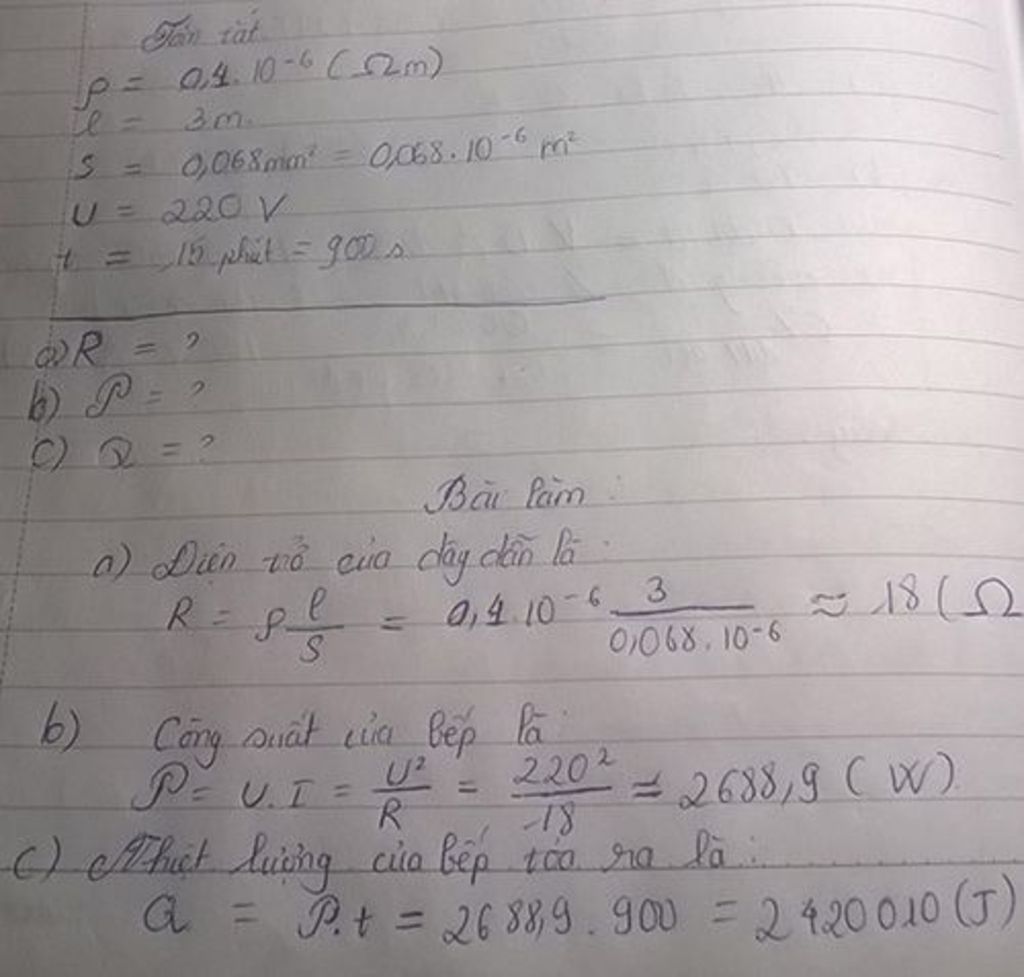 Tóm tắt
ρ = 0,4.10⁻⁶ (Ωm)
l = 3m.
S = 0,068mm² = 0,068.10⁻⁶ m²
U = 220 V
t = 15 phút = 900 s
a) R = ?
b) P = ?
c) Q = ?
Bài làm :
a) Điện trở của dây dẫn là :
R = ρ l/S = 0,4.10⁻⁶ 3/0,068.10⁻⁶ ≈ 18 (Ω
b) Công suất của bếp là :
P = U.I = U²/R = 220²/18 = 2688,9 (W).
c) Nhiệt lượng của bếp tỏa ra là :
Q = P.t = 2688,9 . 900 = 2420010 (J)